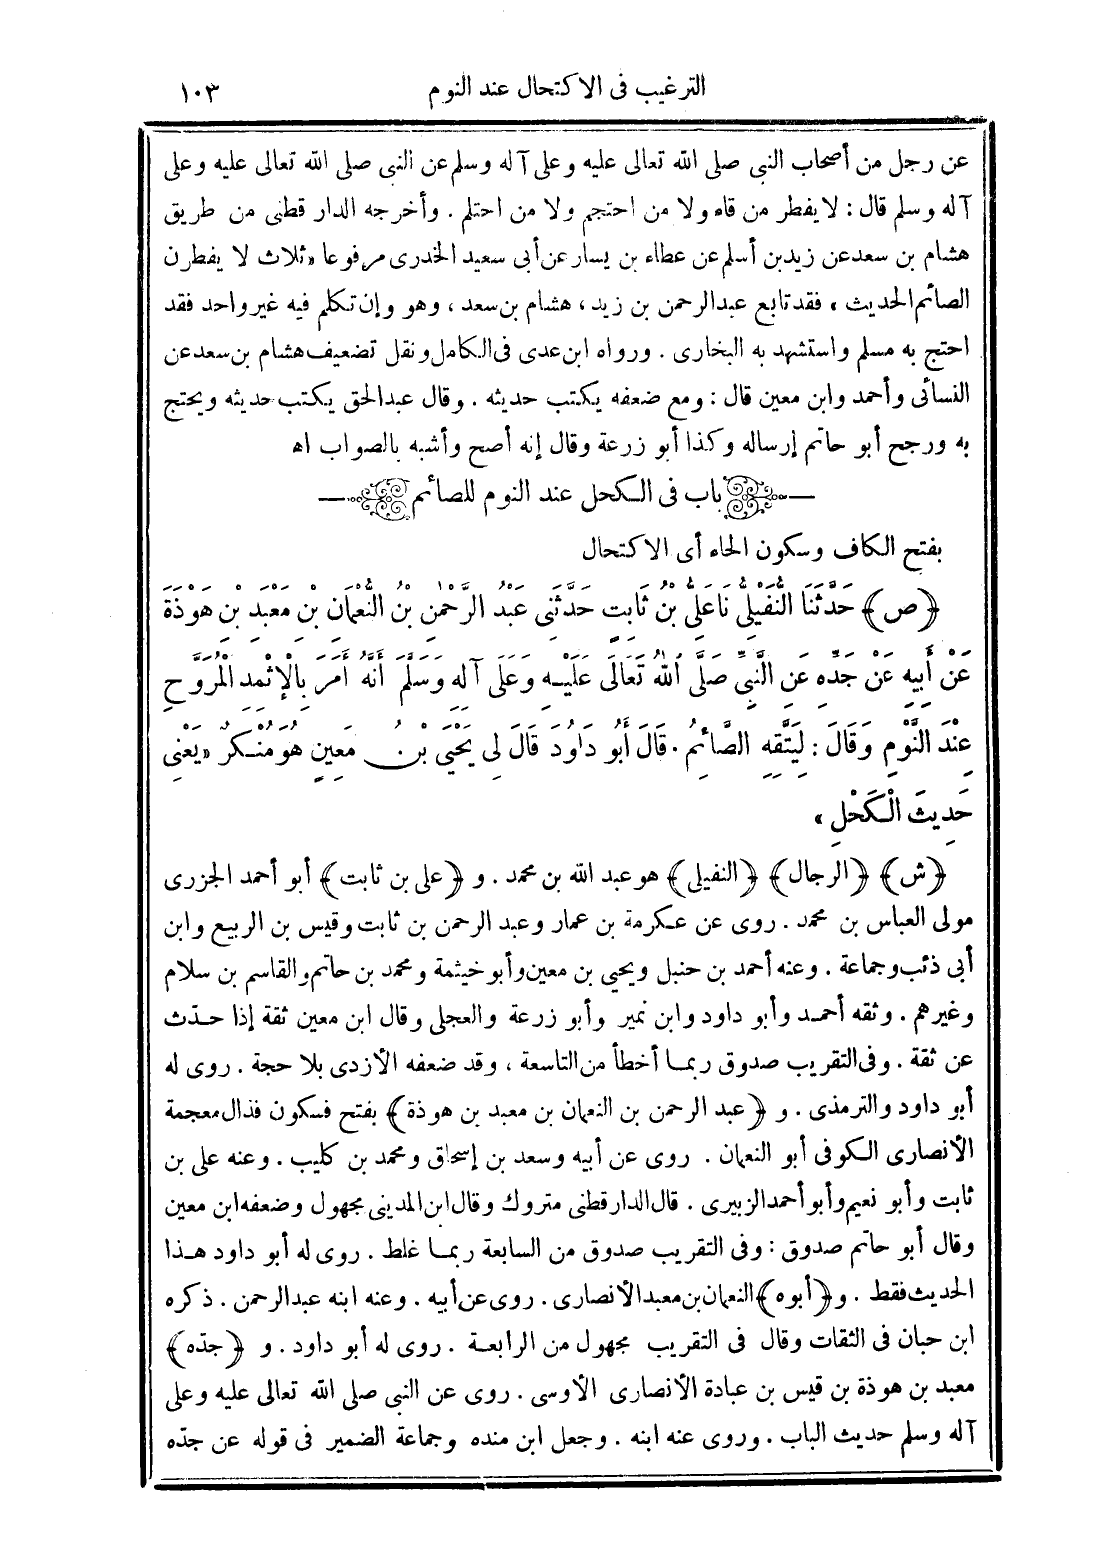 الترغيب فى الاكتحال عند النوم ١٠٣
عن رجل من أصحاب النبى صلى الله تعالى عليه وعلى آله وسلم عن النبى صلى الله تعالى عليه وعلى
آله وسلم قال : لا يفطر من قاء ولا من احتجم ولا من احتلم . وأخرجه الدار قطنى من طريق
هشام بن سعد عن زيد بن أسلم عن عطاء بن يسار عن أبى سعيد الخدرى مرفوعا «ثلاث لا يفطرن
الصائم الحديث» فقد تابع عبد الرحمن بن زيد، هشام بن سعد ، وهو وإن تكلم فيه غير واحد فقد
احتج به مسلم واستشهد به البخارى . ورواه ابن عدى فى الكامل ونقل تضعيف هشام بن سعد عن
النسائى وأحمد وابن معين قال : ومع ضعفه يكتب حديثه . وقال عبد الحق يكتب حديثه ويحتج
به ورجح أبو حاتم إرساله وكذا أبو زرعة وقال إنه أصح وأشبه بالصواب اه
باب فى الكحل عند النوم للصائم
بفتح الكاف وسكون الحاء أى الاكتحال
﴿ص﴾ حَدَّثَنَا النُّفَيْلِىُّ نَا عَلِىُّ بْنُ ثَابِتٍ حَدَّثَنِى عَبْدُ الرَّحْمٰنِ بْنُ النُّعْمَانِ بْنِ مَعْبَدِ بْنِ هَوْذَةَ
عَنْ أَبِيهِ عَنْ جَدِّهِ عَنِ النَّبِىِّ صَلَّى اللهُ تَعَالَى عَلَيْهِ وَعَلَى آلِهِ وَسَلَّمَ أَنَّهُ أَمَرَ بِالْإِثْمِدِ الْمُرَوَّحِ
عِنْدَ النَّوْمِ وَقَالَ : لِيَتَّقِهِ الصَّائِمُ . قَالَ أَبُو دَاوُدَ قَالَ لِى يَحْيَى بْنُ مَعِينٍ هُوَ مُنْكَرٌ «يَعْنِى
حَدِيثَ الْكَحْلِ»
﴿ش﴾ ﴿الرجال﴾ ﴿النفيلى﴾ هو عبد الله بن محمد . و ﴿على بن ثابت﴾ أبو أحمد الجزرى
مولى العباس بن محمد . روى عن عكرمة بن عمار وعبد الرحمن بن ثابت وقيس بن الربيع وابن
أبى ذئب وجماعة . وعنه أحمد بن حنبل ويحيى بن معين وأبو خيثمة ومحمد بن حاتم والقاسم بن سلام
وغيرهم . وثقه أحمد وأبو داود وابن نمير وأبو زرعة والعجلى وقال ابن معين ثقة إذا حدّث
عن ثقة . وفى التقريب صدوق ربما أخطأ من التاسعة ، وقد ضعفه الأزدى بلا حجة . روى له
أبو داود والترمذى . و ﴿عبد الرحمن بن النعمان بن معبد بن هوذة﴾ بفتح فسكون فذال معجمة
الأنصارى الكوفى أبو النعمان . روى عن أبيه وسعد بن إسحاق ومحمد بن كليب . وعنه على بن
ثابت وأبو نعيم وأبو أحمد الزبيرى . قال الدارقطنى متروك وقال ابن المدينى مجهول وضعفه ابن معين
وقال أبو حاتم صدوق : وفى التقريب صدوق من السابعة ربما غلط . روى له أبو داود هذا
الحديث فقط . و ﴿أبوه﴾ النعمان بن معبد الأنصارى . روى عن أبيه . وعنه ابنه عبد الرحمن . ذكره
ابن حبان فى الثقات وقال فى التقريب مجهول من الرابعة . روى له أبو داود . و ﴿جدّه﴾
معبد بن هوذة بن قيس بن عبادة الأنصارى الأوسى . روى عن النبى صلى الله تعالى عليه وعلى
آله وسلم حديث الباب . وروى عنه ابنه . وجعل ابن منده وجماعة الضمير فى قوله عن جدّه